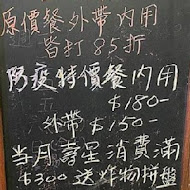 原價餐外帶內用
皆打85折
防疫特價餐內用
$180-
外帶$150-
當月壽星消費滿
$300送炸物拼盤